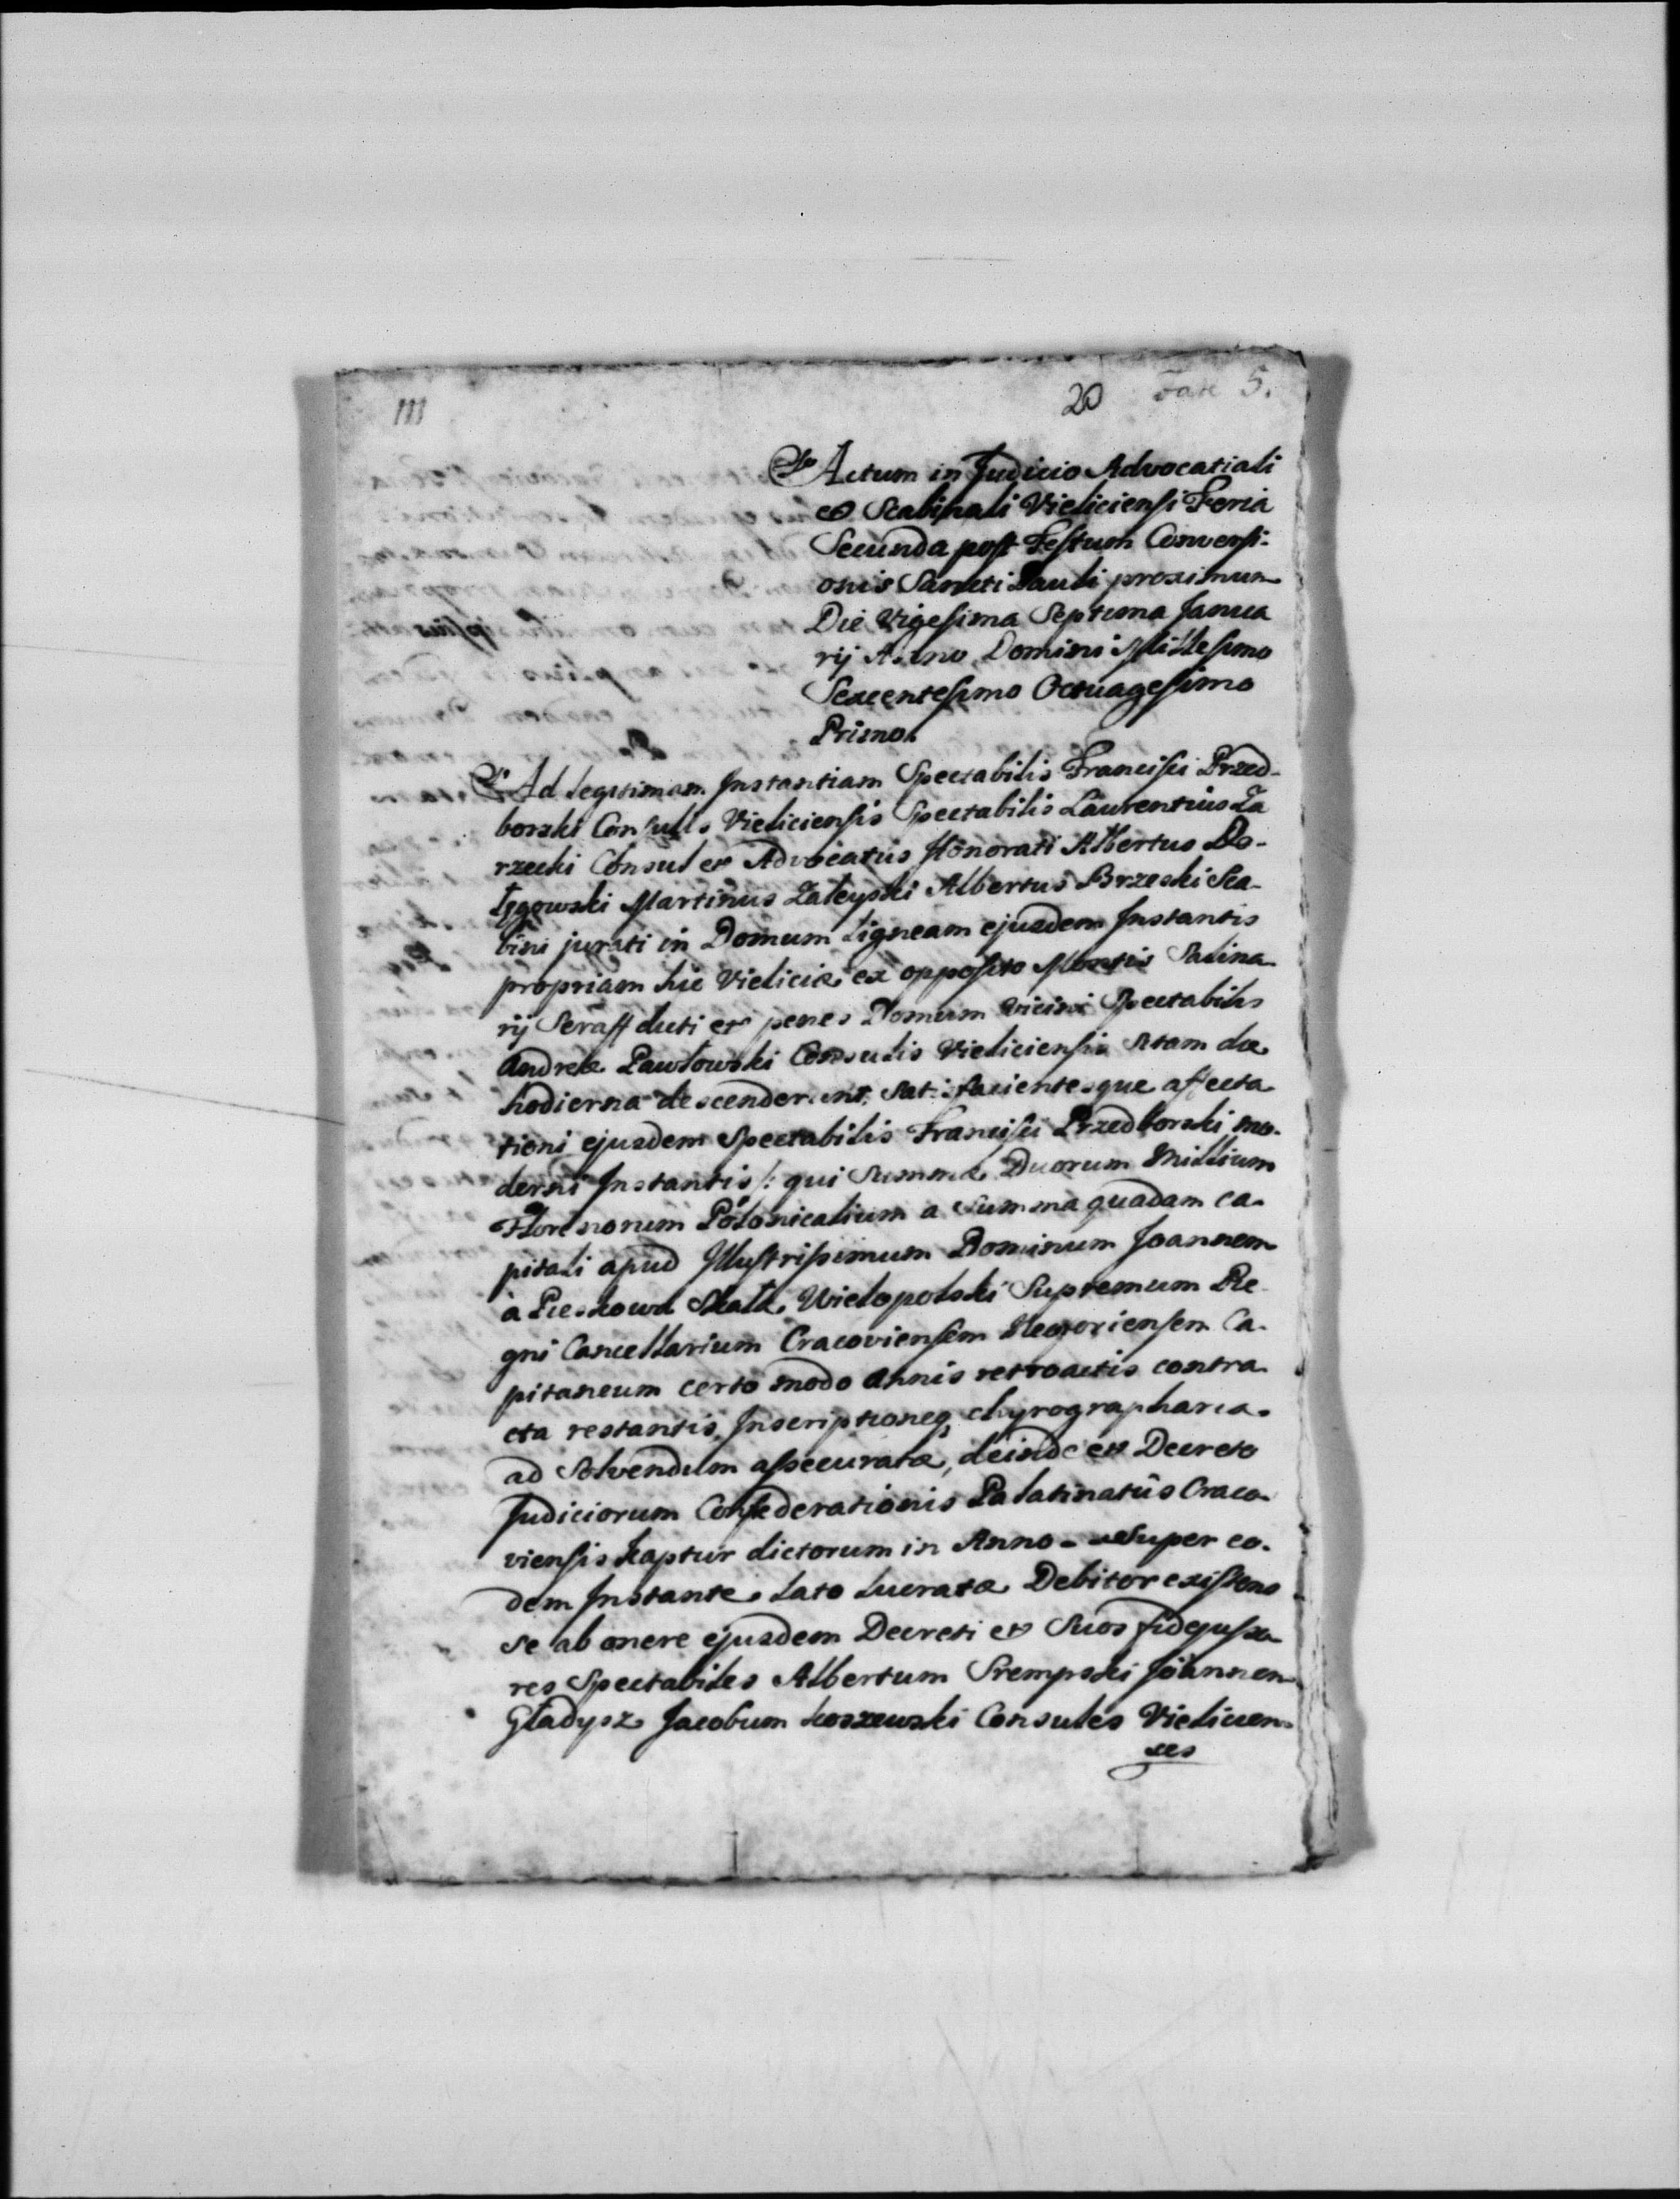 111
20 Fasc 5.
Actum in Judicio Advocatiali
et Scabinali Vieliciensi Feria
Secunda post Festum Conversi-
onis Sancti Pauli proximum
Die Vigesima Septima Janua
rij Anno Domini Millesimo
Sexcentesimo Octuagesimo
Primo.
Ad legitimam Instantiam Spectabilis Francisci Przed-
borski Consulis Vieliciensis Spectabilis Laurentius Za
rzecki Consul et Advocatus Honorati Albertus Do-
łęgowski Martinus Zaleyski Albertus Brzeski Sca-
bini jurati in Domum Ligneam ejusdem Instantis
propriam hic Vieliciæ ex opposito Montis Salina-
rij Seraff dicti et penes Domum vicini Spectabilis
Andreæ Pawłowski Consulis Vieliciensis sitam die
hodierna descenderunt, Satisfacientesque affecta
tioni ejusdem Spectabilis Francisci Przedborski mo-
derni Instantis /: qui Summæ Duorum Millium
Florenorum Polonicalium a Summa quadam ca-
pitali apud Illustrissimum Dominum Joannem
à Pieskowa Skała Wielopolski Supremum Re-
gni Cancellarium Cracoviensem Ca-
pitaneum certo modo Annis retroactis contra-
cta restantis, Inscriptioneq chyrographaria
ad Solvendum assecuratæ, deinde et Decreto
Judiciorum Confederationis Palatinatûs Craco-
viensis Kaptur dictorum in Anno - - Super eo-
dem Instante lato lucratæ Debitor existens
se ab onere ejusdem Decreti et Suos fidejusso-
res Spectabiles Albertum Srempski Joannem
Gładysz Jacobum Koszewski Consules Vielicien-
ses